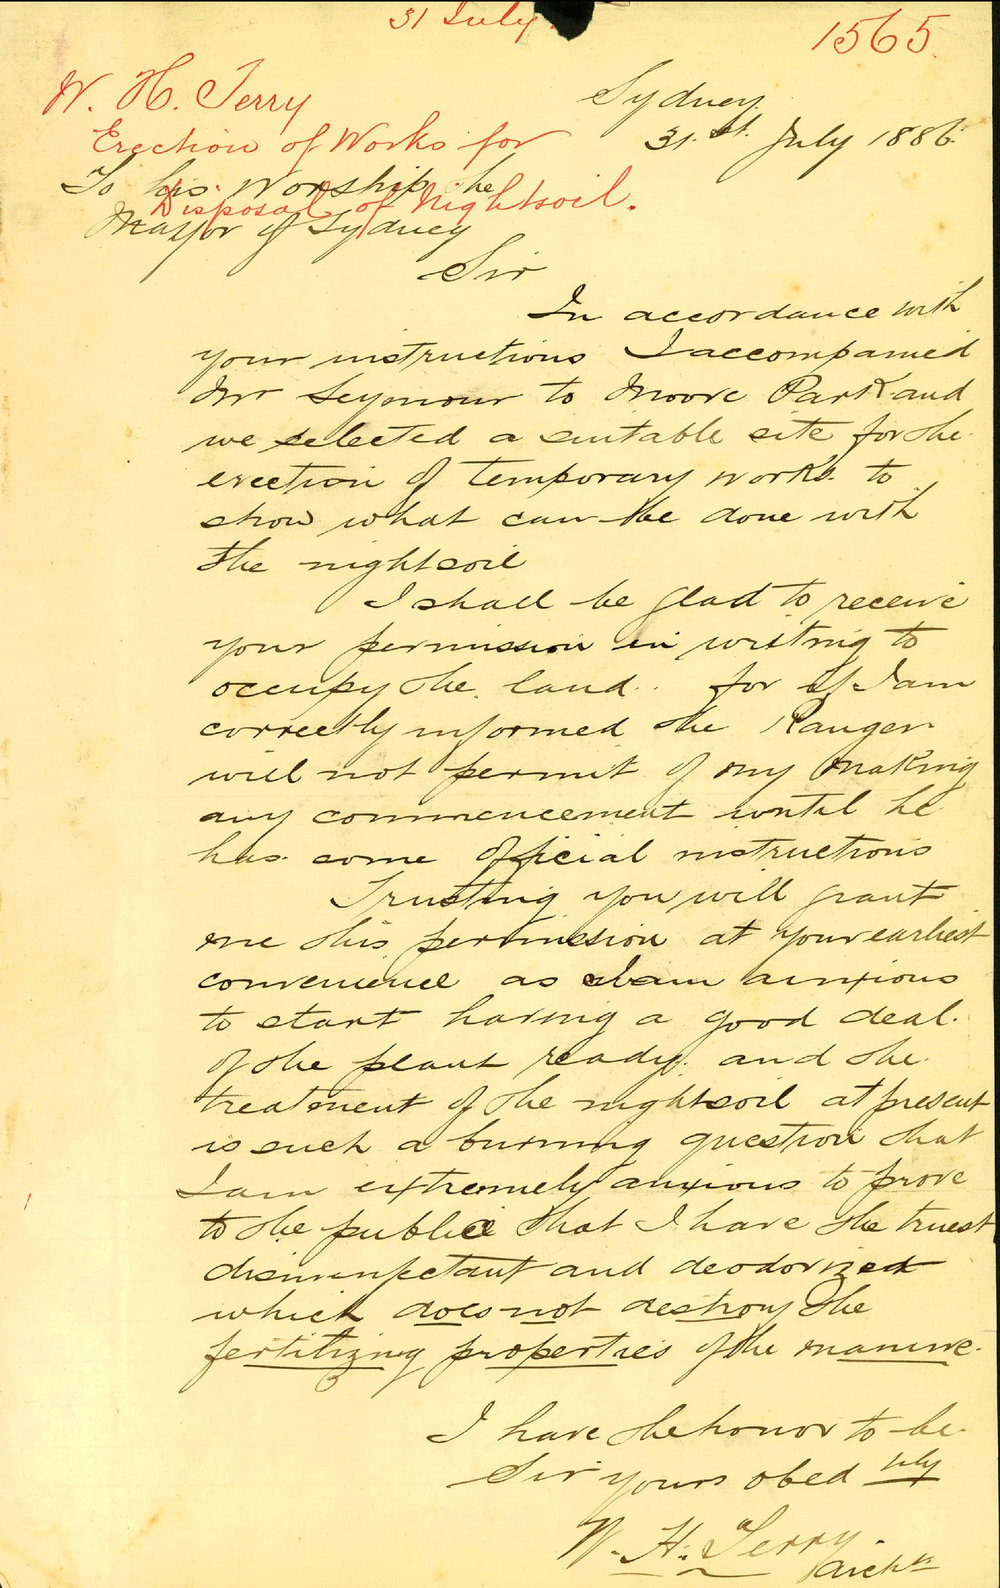 31 July
1565
W. H. Terry
Erection of Works for
Disposal of Nightsoil.
Sydney
31st. July 1886.
To his Worship the
Mayor of Sydney
Sir
In accordance with
your instructions I accompanied
Mr Seymour to Moore Park and
we selected a suitable site for the
erection of temporary works to
show what can be done with
the nightsoil
I shall be glad to receive
your permission in writing to
occupy the land. for if I am
correctly informed the Ranger
will not permit of my making
any commencement until he
has some official instructions
Trusting you will grant
me this permission at your earliest
convenience as I am anxious
to start having a good deal
of the plant ready. and the
treatment of the nightsoil at present
is such a burning question that
I am extremely anxious to prove
to the public that I have the truest
disinfectant and deodorizer
which does not destroy the
fertilizing properties of the manure.
I have the honor to be
Sir yours obedtly
W. H. Terry.
Archt